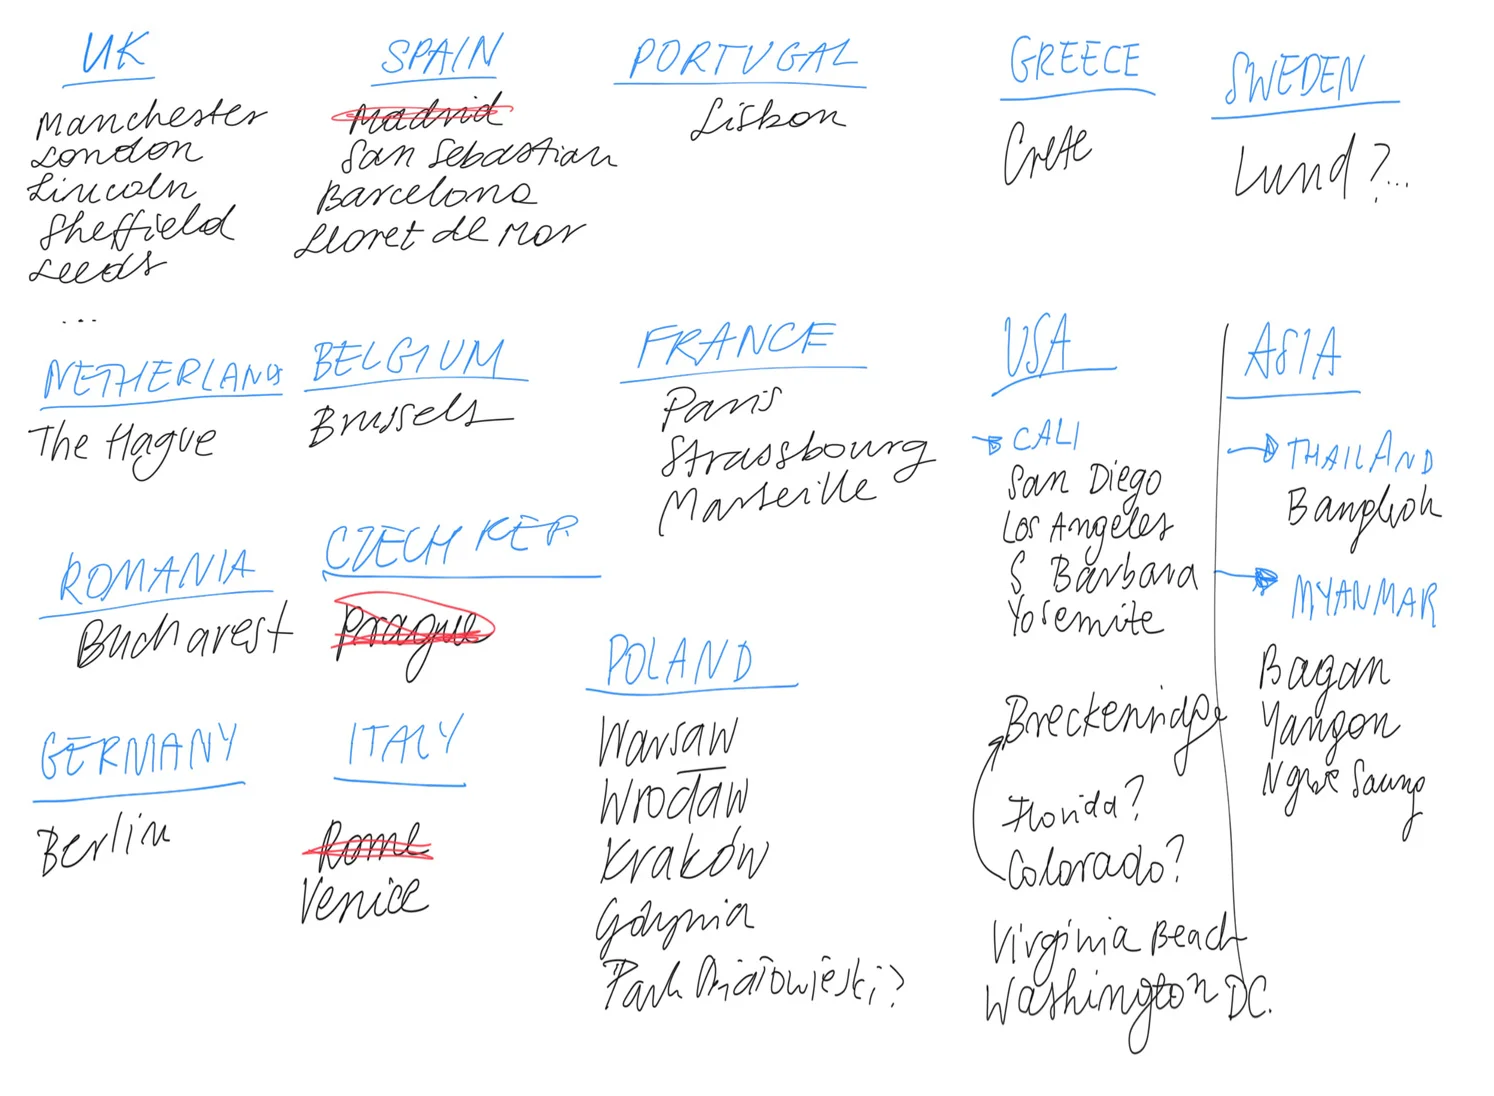 UK
Manchester
London
Lincoln
Sheffield
Leeds
...
SPAIN
Madrid
San Sebastian
Barcelona
Lloret de Mar
PORTUGAL
Lisbon
GREECE
Crete
SWEDEN
Lund?...
NETHERLANDS
The Hague
BELGIUM
Brussels
FRANCE
Paris
Strassbourg
Marseille
USA
CALI
San Diego
Los Angeles
S Barbara
Yosemite
Breckenridge
Florida?
Colorado?
Virginia Beach
Washington DC.
ASIA
THAILAND
Bangkok
MYANMAR
Bagan
Yangon
Ngwe Saung
ROMANIA
Bucharest
CZECH REP.
Prague
POLAND
Warsaw
Wrocław
Kraków
Gdynia
Park Białowieski?
GERMANY
Berlin
ITALY
Rome
Venice